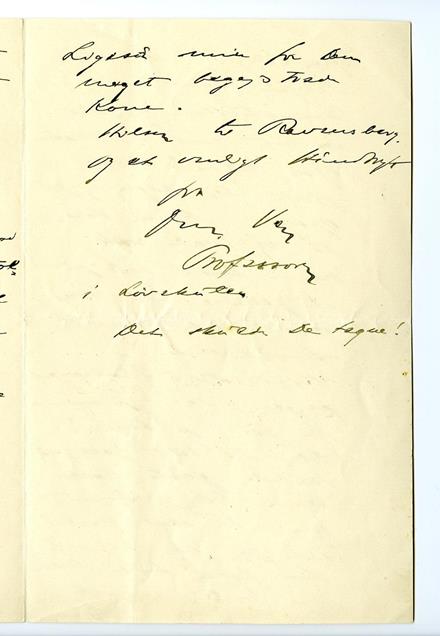 Ligeså min for Dem
meget begejstrede
Kone.
Hilsen til Ravensberg,
og et venligt Håndtryk
fra
Deres Ven
Professoren
i Løvekulen
Det skulde De tegne!